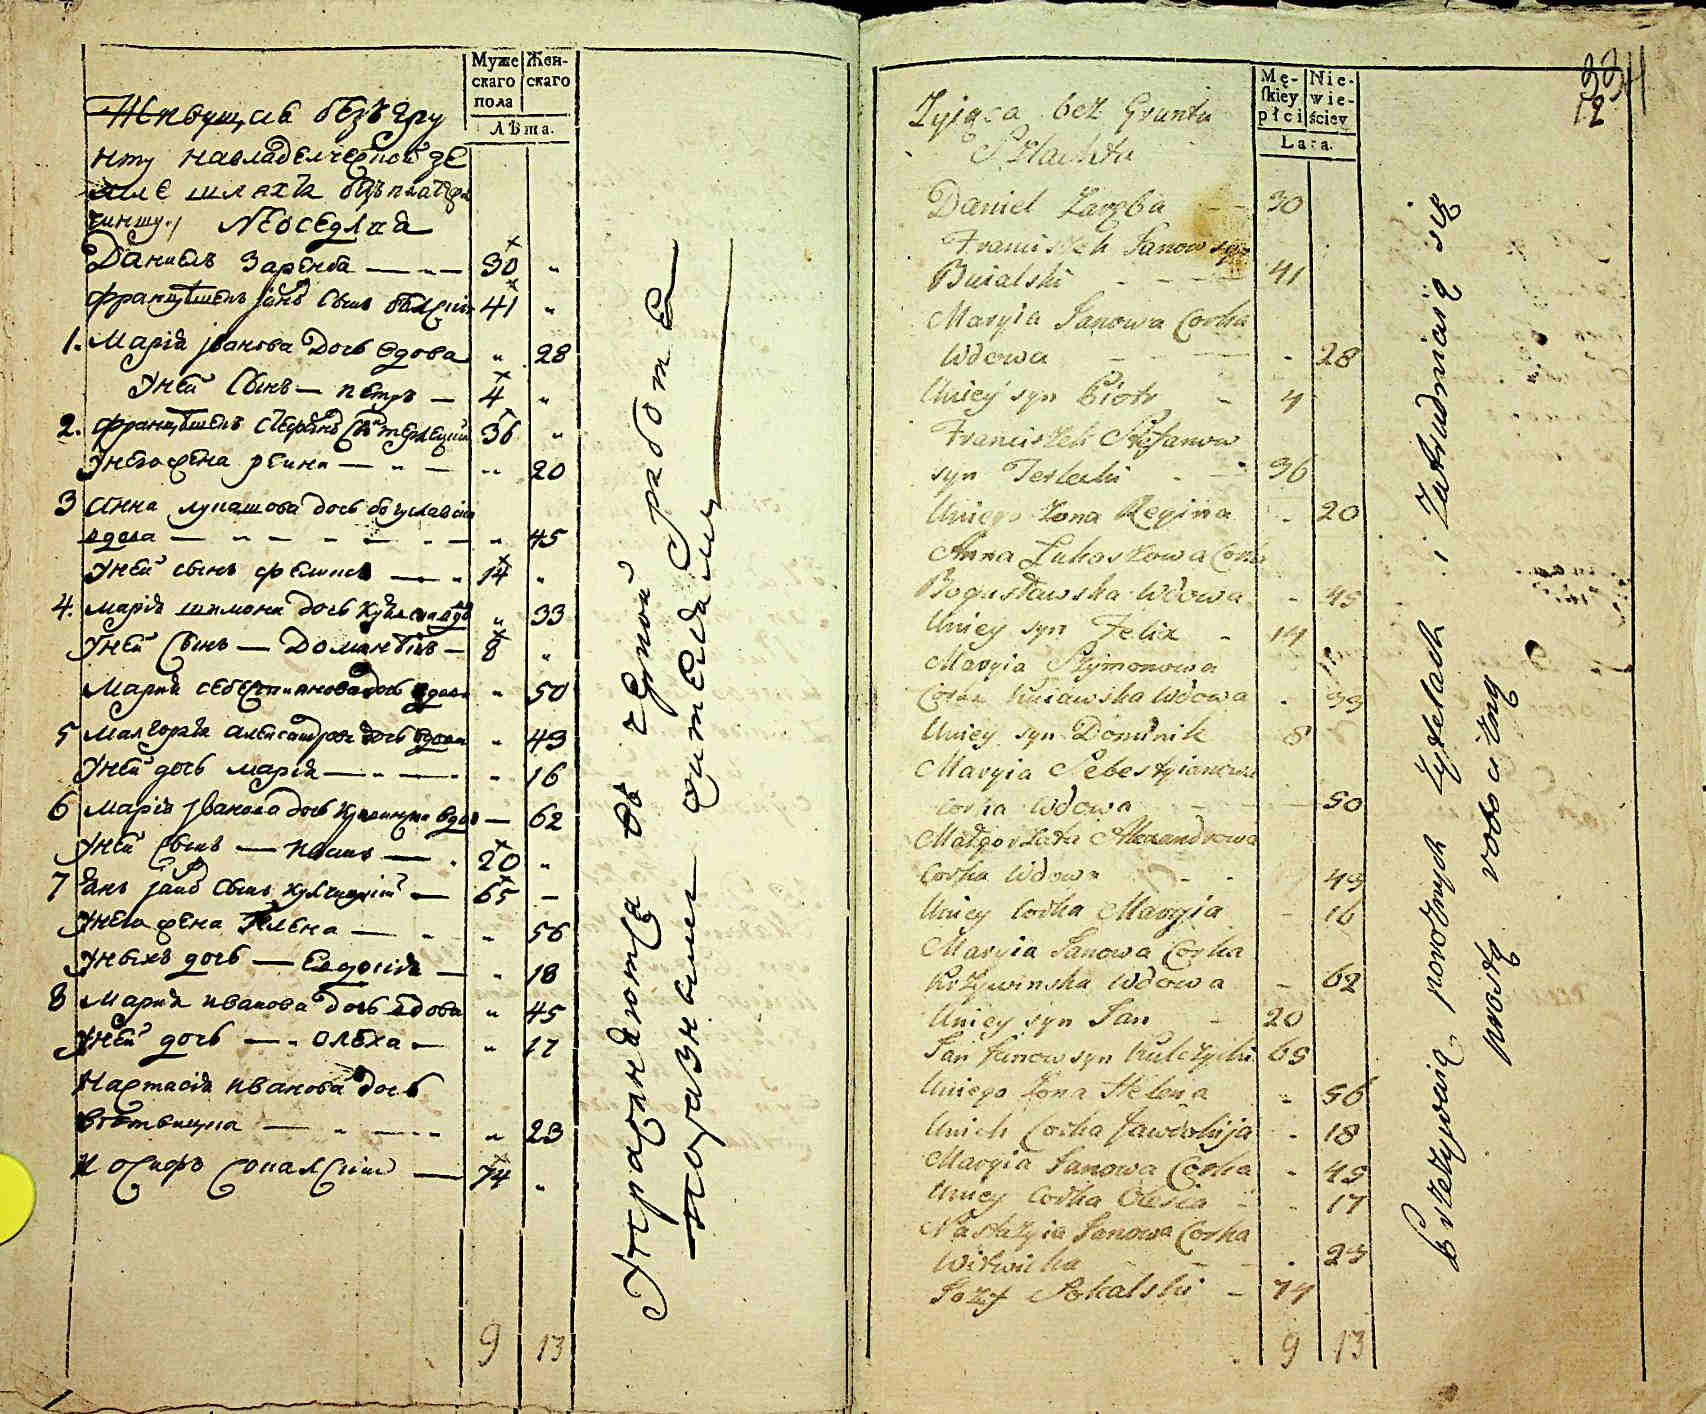 Муже
скаго
пола
Жен-
скаго
Лѣта.
Живущая безъ гру
нту на владелческой зе
мле шляхта безъ платежа
чиншу./ Неоседлая
Даниелъ Заремба — „ — 30 „
Францишекъ Янъ Сынъ 41 „
1. Марія Іванова Дочь вдова „ 28
Уней Сынъ — Петръ — 4 „
2. Францишекъ Стефанъ Сынъ Терлецкий 36 „
Унего жена регина — „ — „ 20
3 Анна лукашова дочь богуславска
вдова — „ 45
Уней сынъ феликсъ — 14 „
4. марія шимонова дочь вдова „ 33
Уней Сынъ — Доминикъ — 8 „
Мария себестианова дочь вдова „ 50
5 малгоржата александрова дочь вдова „ 49
Уней дочь марія — „ 16
6 марія Іванова дочь вдова — 62
Уней Сынъ — Иванъ — 20 „
7 Янъ Янов Сынъ кулчицкій — 65 —
Унего жена Гелена — „ 56
Унихъ дочь — Евдокія — „ 18
8 Мария иванова дочь вдова „ 45
Уней дочь — олеха — „ 17
Настасія иванова дочь
витвицка — „ 23
Иосифъ Сокалский — 74 „
9 13
Упражняются въ черной работе
по разным жителям
Mę-
skiey
płci
Nie-
wie-
ściey
Lata.
334
12
Zyiąca bez Gruntu
Szlachta
Daniel Zaręba — 30
Franciszek Janow syn
Buialski — 41
Maryia Janowa Corka
Wdowa — 28
Uniey syn Piotr — 4
Franciszek Stefanow
syn Terlecki — 36
Uniego Zona Regina — 20
Anna Łukaszowa Corka
Bogusławska Wdowa — 45
Uniey syn Felix — 14
Maryia Szymonowa
Corka Kuiawska Wdowa — 33
Uniey syn Dominik 8
Maryia Sebestyianowa
Corka Wdowa — 50
Małgorzata Alexandrowa
Corka Wdowa — 49
Uniey Corka Maryia — 16
Maryia Janowa Corka
Krzywinska Wdowa — 62
Uniey syn Jan — 20
Jan Janow syn Kulczycki 65
Uniego Zona Helena — 56
Unich Corka Jawdokija — 18
Maryia Janowa Corka — 45
Uniey Corka Olexa — 17
Nastazyia Janowa Corka
Witwicka — 23
Jozef Sokalski — 74
9 13
Przezywaią w rożnych mieyscach i Zatrudniaią się
prostą robocizną